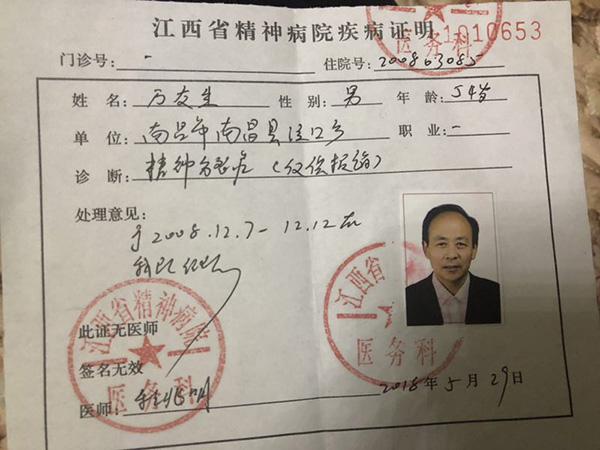 江西省精神病院疾病证明
1010653
门诊号: - 住院号: 200863085
姓 名: 万友生 性 别: 男 年 龄: 54岁
单 位: 南昌市南昌县泾口乡 职 业: -
诊 断: 精神分裂症 (仅供报销)
处理意见:
于2008.12.7-12.12在
我院住院
此证无医师
签名无效
医师:
2018年5月29日
江西省精神病院
医务科
江西省
医务科
医务科